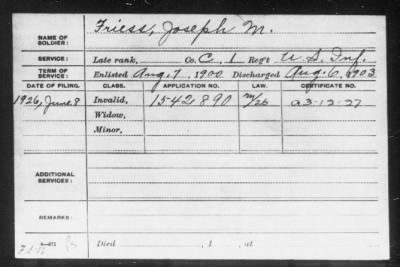 NAME OF SOLDIER: Friess, Joseph M.
SERVICE: Late rank, Co. C, 1 Reg't U.S. Inf.
TERM OF SERVICE: Enlisted Aug. 7, 1900 Discharged Aug. 6, 1903
DATE OF FILING. CLASS. APPLICATION NO. LAW. CERTIFICATE NO.
1926, June 8 Invalid, 1542890 A-3-12-27
Widow,
Minor,
ADDITIONAL SERVICES:
REMARKS:
Died , 1 , at